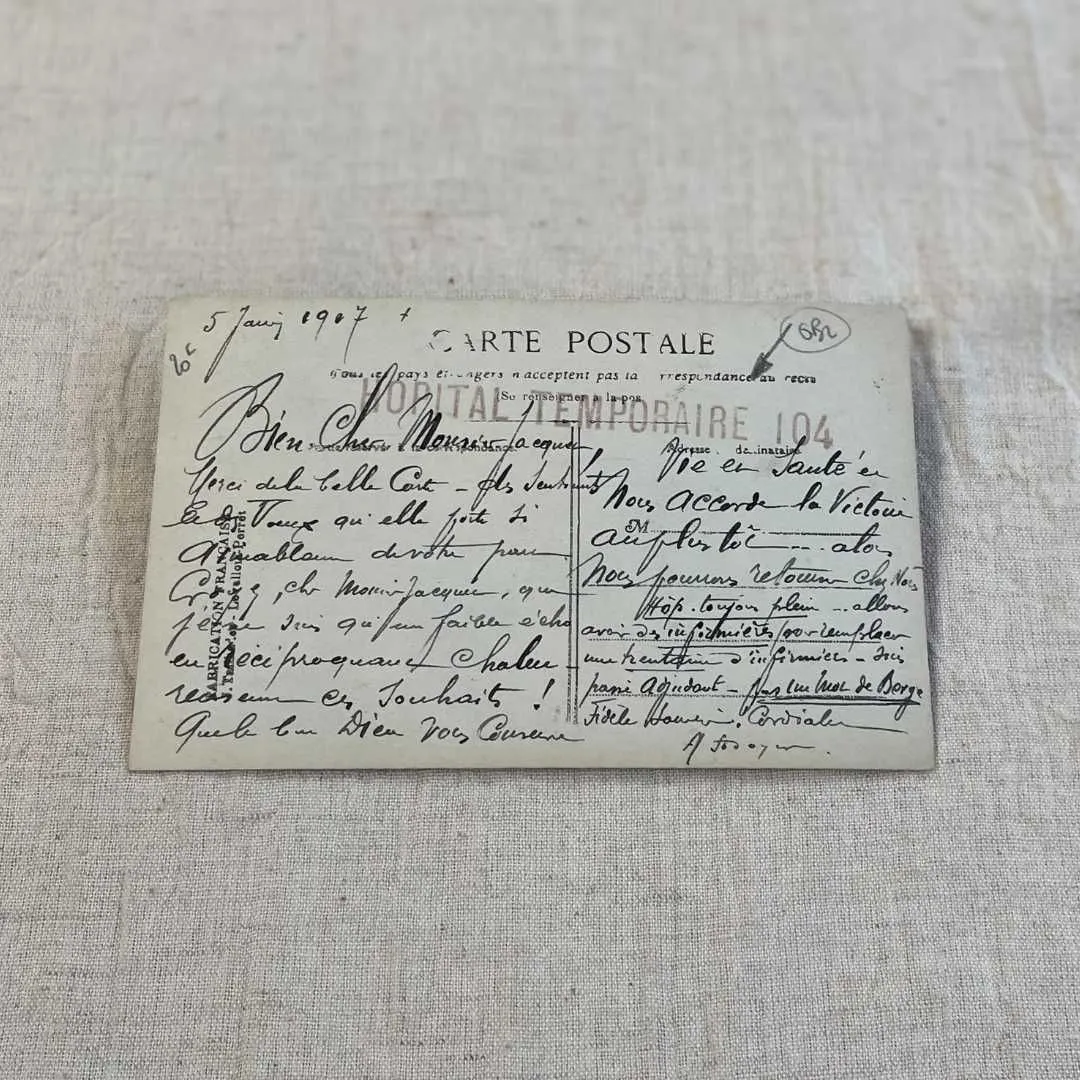 5 Janv 1917 +
CARTE POSTALE
Tous les pays étrangers n'acceptent pas la correspondance au recto
(Se renseigner à la poste)
HOPITAL TEMPORAIRE 104
Bien Cher Monsieur Jacques
Correspondance
Adresse du destinataire
Merci de la belle Carte - des Sentiments
et Voeux qu'elle porte si
Aimablement de votre part
Croyez, cher Monsieur Jacques, que
je ne suis qu'un faible écho
en réciproquant
ces Souhaits !
Que le bon Dieu Vous Conserve
Vie et Santé et
Nous Accorde la Victoire
M
au plus tôt - alors
Nous pourrons retourner chez Nous
Hôp. toujours plein - allons
avoir des infirmières pour remplacer
une trentaine d'infirmiers - suis
passé Adjudant -
Fidèle Souvenir. Cordial
FABRICATION FRANÇAISE
Levallois-Perret